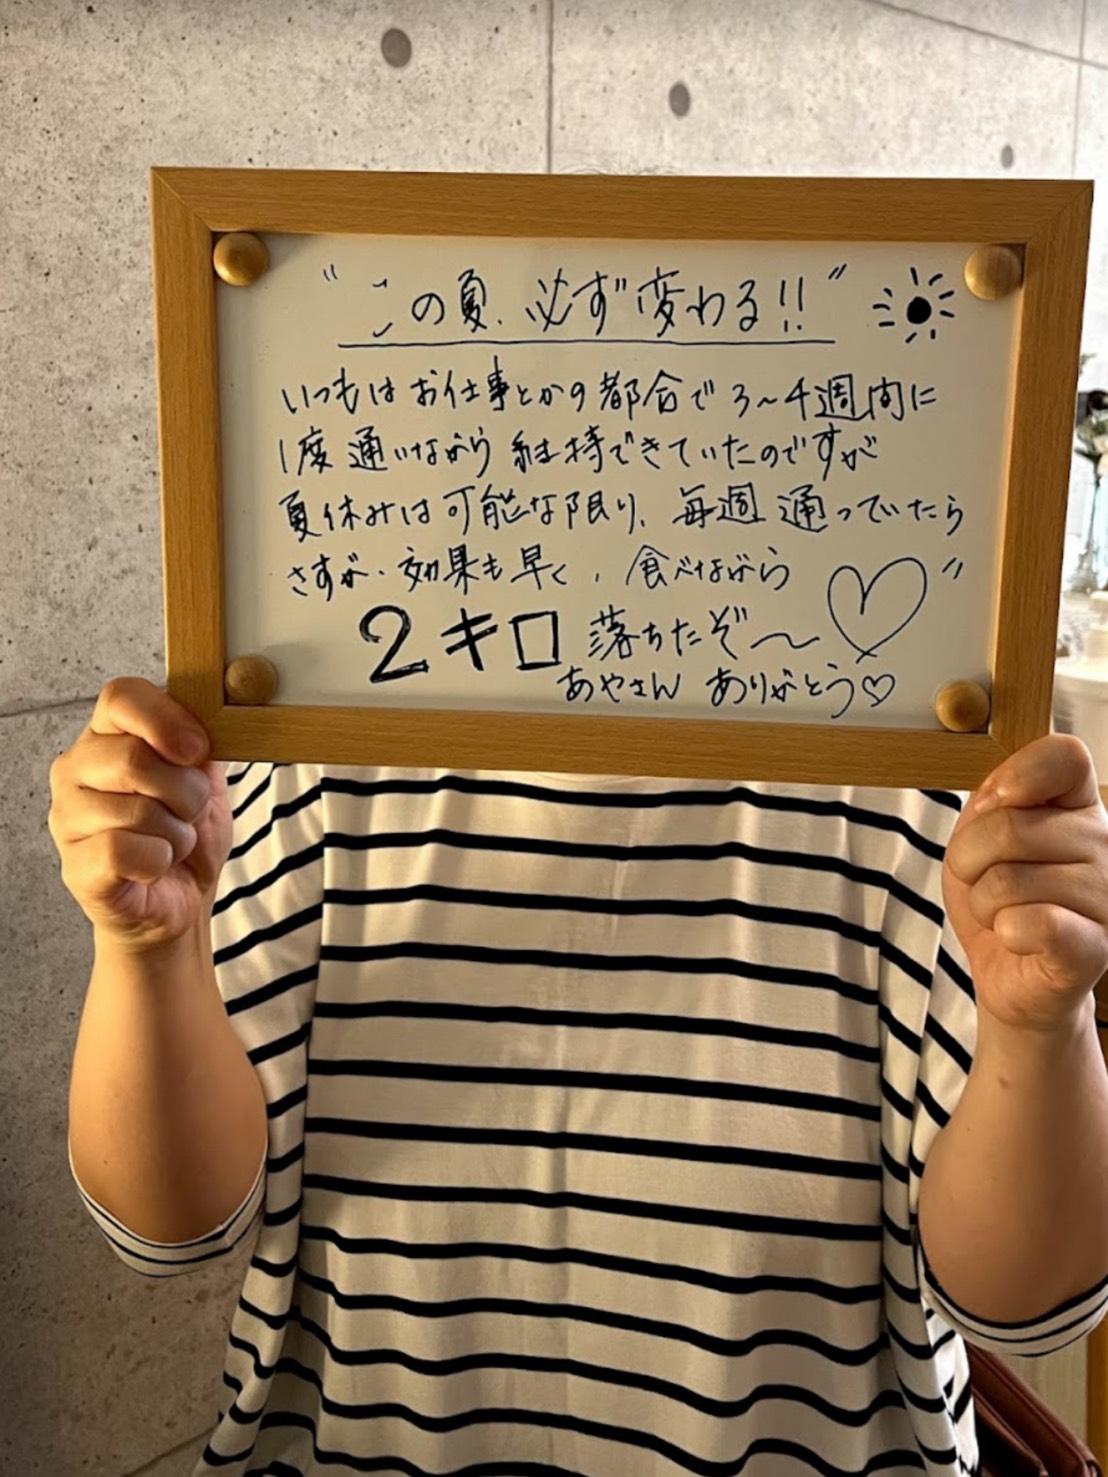 "この夏、必ず変わる!!"
いつもは お仕事とかの都合で 3〜4週間に
1度 通いながら 維持できていたのですが
夏休みは可能な限り、毎週 通っていたら
さすが、効果も早く、食べながら
2キロ 落ちたぞ〜
あやさん ありがとう♡